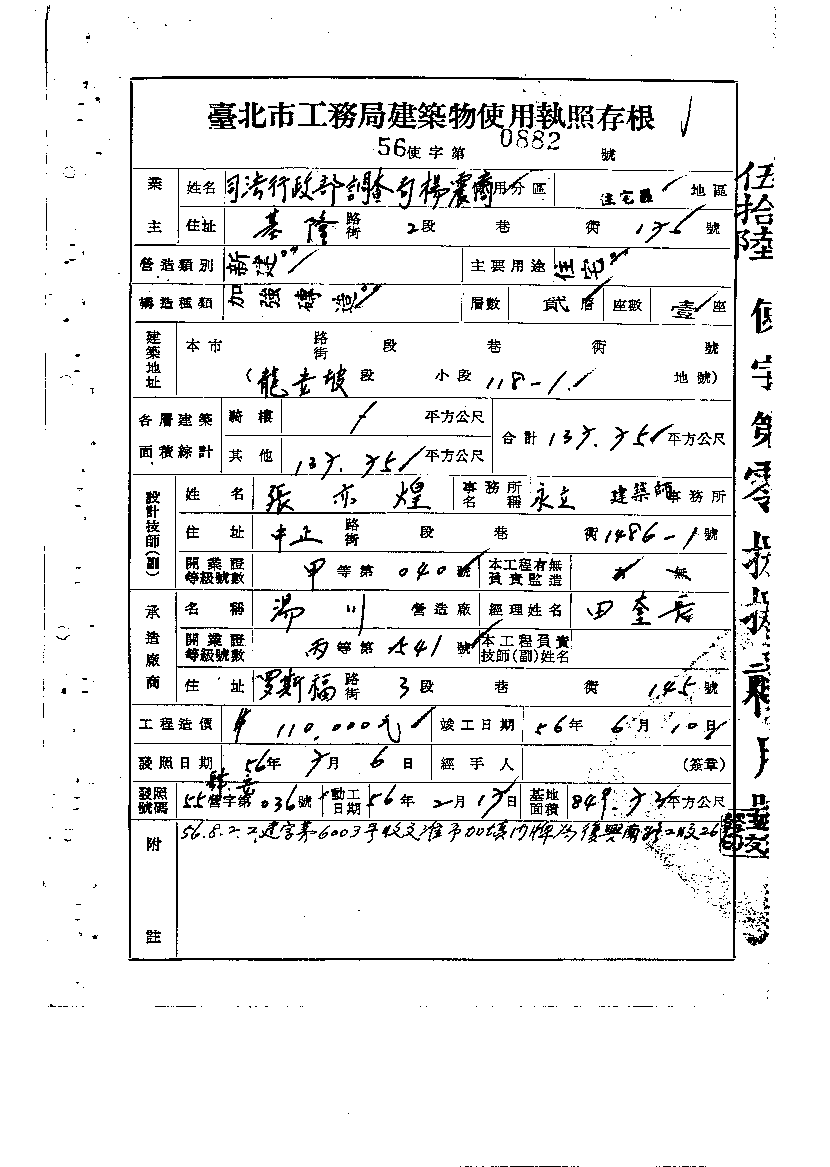 臺北市工務局建築物使用執照存根
56使字第 0882 號
業主 姓名 司法行政部調查局楊震裔 使用分區 住宅區 地區
住址 基隆 路街 2段 巷 街 175號
營造類別 新建 主要用途 住宅
構造種類 加強磚造 層數 貳層 座數 壹座
建築地址 本市 路街 段 巷 街 號
(龍安坡段 小段 118-1 地號)
各層建築面積綜計 騎樓 / 平方公尺 合計 137.75 平方公尺
其他 137.75 平方公尺
設計技師(副) 姓名 張亦煌 事務所名稱 永立 建築師事務所
住址 中正 路街 段 巷 街 1486-1號
開業證等級號數 甲等第 040號 本工程有無負責監造 無
承造廠商 名稱 湯川 營造廠 經理姓名 田奎
開業證等級號數 丙等第 541號 本工程負責技師(副)姓名
住址 罗斯福 路街 3段 巷 街 145號
工程造價 $110,000元 竣工日期 56年 6月 10日
發照日期 56年 7月 6日 經手人 (簽章)
發照號碼 55營字第036號 動工日期 56年 2月 17日 基地面積 849.72平方公尺
附註 56.8.2.建字第6003号收文准予加填門牌為復興南路2段26
伍拾陸 使字第零捌捌